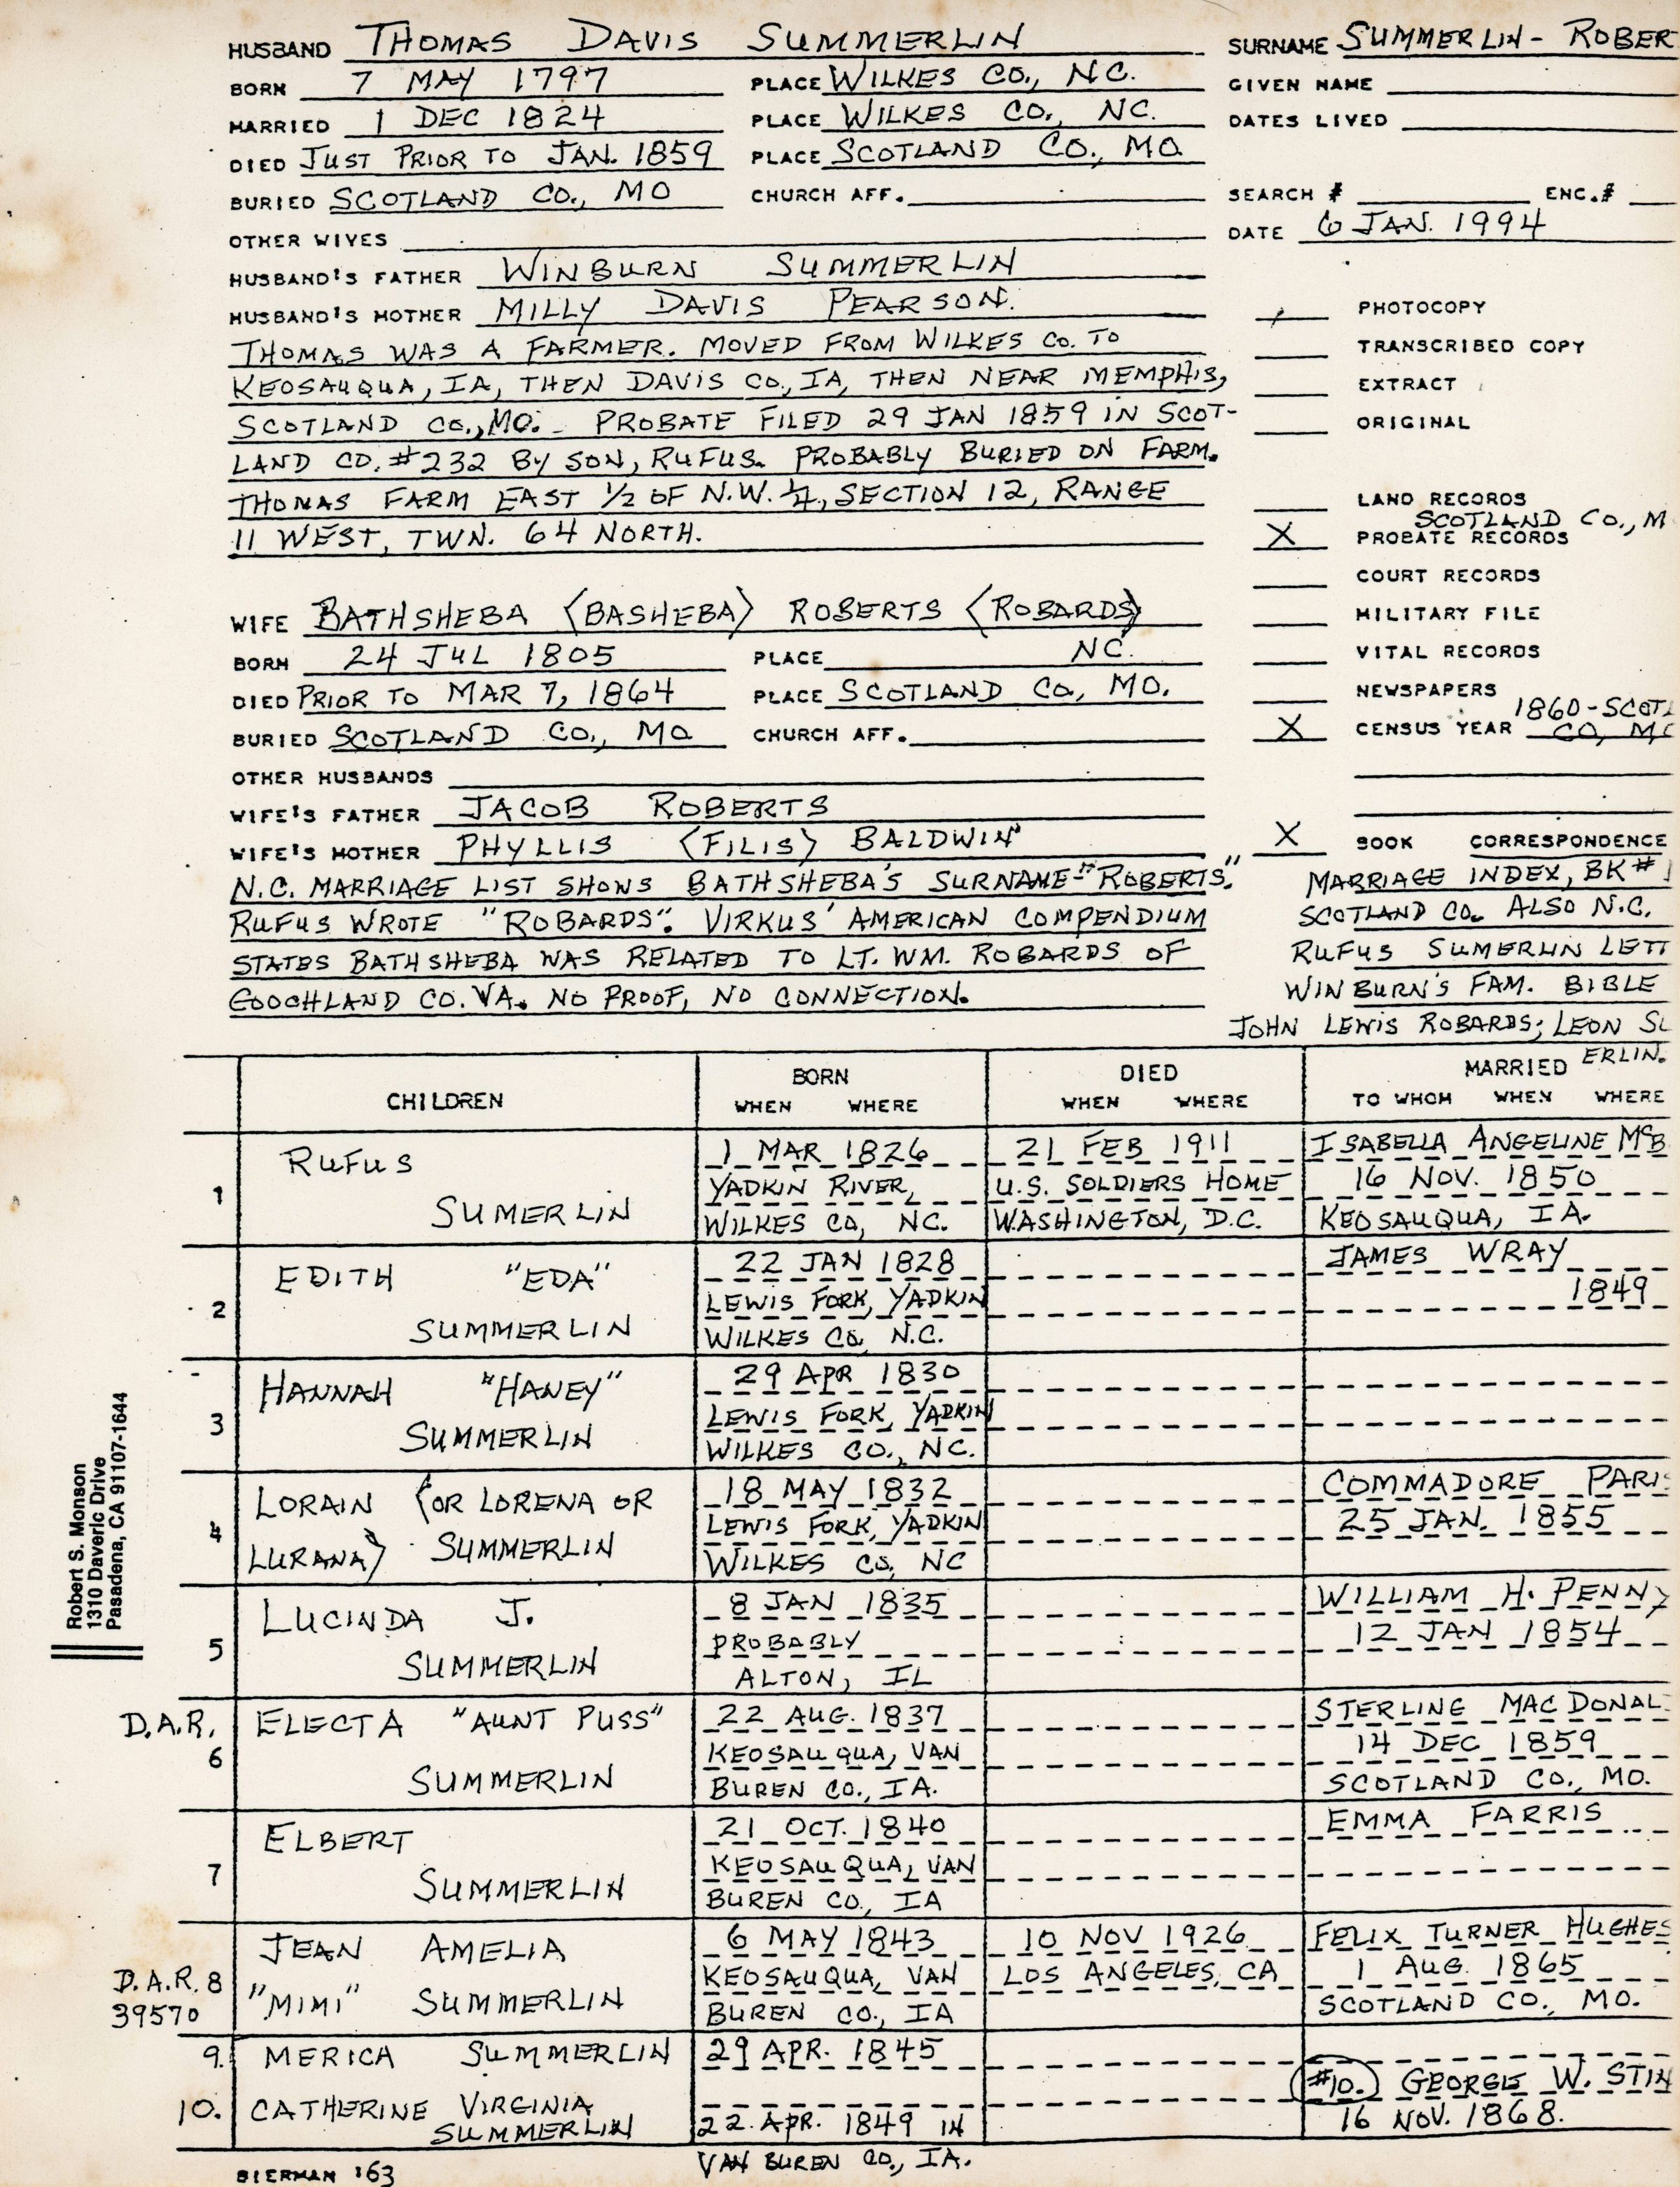 HUSBAND THOMAS DAVIS SUMMERLIN
BORN 7 MAY 1797 PLACE WILKES CO., NC.
MARRIED 1 DEC 1824 PLACE WILKES CO., NC.
DIED JUST PRIOR TO JAN. 1859 PLACE SCOTLAND CO., MO
BURIED SCOTLAND CO., MO CHURCH AFF.
OTHER WIVES
HUSBAND'S FATHER WINBURN SUMMERLIN
HUSBAND'S MOTHER MILLY DAVIS PEARSON.
THOMAS WAS A FARMER. MOVED FROM WILKES CO. TO
KEOSAUQUA, IA, THEN DAVIS CO., IA, THEN NEAR MEMPHIS,
SCOTLAND CO., MO. PROBATE FILED 29 JAN 1859 IN SCOT-
LAND CO. #232 BY SON, RUFUS. PROBABLY BURIED ON FARM.
THOMAS FARM EAST 1/2 OF N.W. 1/4, SECTION 12, RANGE
11 WEST, TWN. 64 NORTH.
WIFE BATHSHEBA (BASHEBA) ROBERTS (ROBARDS)
BORN 24 JUL 1805 PLACE NC.
DIED PRIOR TO MAR 7, 1864 PLACE SCOTLAND CO., MO.
BURIED SCOTLAND CO., MO CHURCH AFF.
OTHER HUSBANDS
WIFE'S FATHER JACOB ROBERTS
WIFE'S MOTHER PHYLLIS (FILIS) BALDWIN
N.C. MARRIAGE LIST SHOWS BATHSHEBA'S SURNAME "ROBERTS."
RUFUS WROTE "ROBARDS". VIRKUS' AMERICAN COMPENDIUM
STATES BATHSHEBA WAS RELATED TO LT. WM. ROBARDS OF
GOOCHLAND CO. VA. NO PROOF, NO CONNECTION.
SURNAME SUMMERLIN - ROBER
GIVEN NAME
DATES LIVED
SEARCH # ENC.#
DATE 6 JAN. 1994
PHOTOCOPY
TRANSCRIBED COPY
EXTRACT
ORIGINAL
LAND RECORDS
SCOTLAND CO., M
X PROBATE RECORDS
COURT RECORDS
MILITARY FILE
VITAL RECORDS
NEWSPAPERS
1860-SCOTL
X CENSUS YEAR CO, MO
X BOOK CORRESPONDENCE
MARRIAGE INDEX, BK #1
SCOTLAND CO. ALSO N.C.
RUFUS SUMERLIN LETT
WINBURN'S FAM. BIBLE
JOHN LEWIS ROBARDS; LEON SU
ERLIN.
CHILDREN BORN DIED MARRIED
WHEN WHERE WHEN WHERE TO WHOM WHEN WHERE
RUFUS 1 MAR 1826 21 FEB 1911 ISABELLA ANGELINE McB
1 YADKIN RIVER, U.S. SOLDIERS HOME 16 NOV. 1850
SUMERLIN WILKES CO, NC. WASHINGTON, D.C. KEOSAUQUA, IA.
EDITH "EDA" 22 JAN 1828 JAMES WRAY
2 LEWIS FORK, YADKIN 1849
SUMMERLIN WILKES CO, N.C.
HANNAH "HANEY" 29 APR 1830
3 LEWIS FORK, YADKIN
SUMMERLIN WILKES CO., NC.
LORAIN (OR LORENA OR 18 MAY 1832 COMMADORE PARIS
4 LEWIS FORK, YADKIN 25 JAN. 1855
LURANA) SUMMERLIN WILKES CO, NC
LUCINDA J. 8 JAN 1835 WILLIAM H. PENNY
5 PROBABLY 12 JAN 1854
SUMMERLIN ALTON, IL
D.A.R. ELECTA "AUNT PUSS" 22 AUG. 1837 STERLING MACDONAL
6 KEOSAUQUA, VAN 14 DEC 1859
SUMMERLIN BUREN CO., IA. SCOTLAND CO., MO.
ELBERT 21 OCT. 1840 EMMA FARRIS
7 KEOSAUQUA, VAN
SUMMERLIN BUREN CO., IA
JEAN AMELIA 6 MAY 1843 10 NOV 1926 FELIX TURNER HUGHES
D.A.R. 8 KEOSAUQUA, VAN LOS ANGELES, CA 1 AUG. 1865
39570 "MIMI" SUMMERLIN BUREN CO., IA SCOTLAND CO., MO.
9. MERICA SUMMERLIN 29 APR. 1845
#10. GEORGE W. STIN
10. CATHERINE VIRGINIA
SUMMERLIN 22 APR. 1849 IN 16 NOV. 1868.
VAN BUREN CO., IA.
BIERMAN '63
Robert S. Monson
1310 Daveric Drive
Pasadena, CA 91107-1644